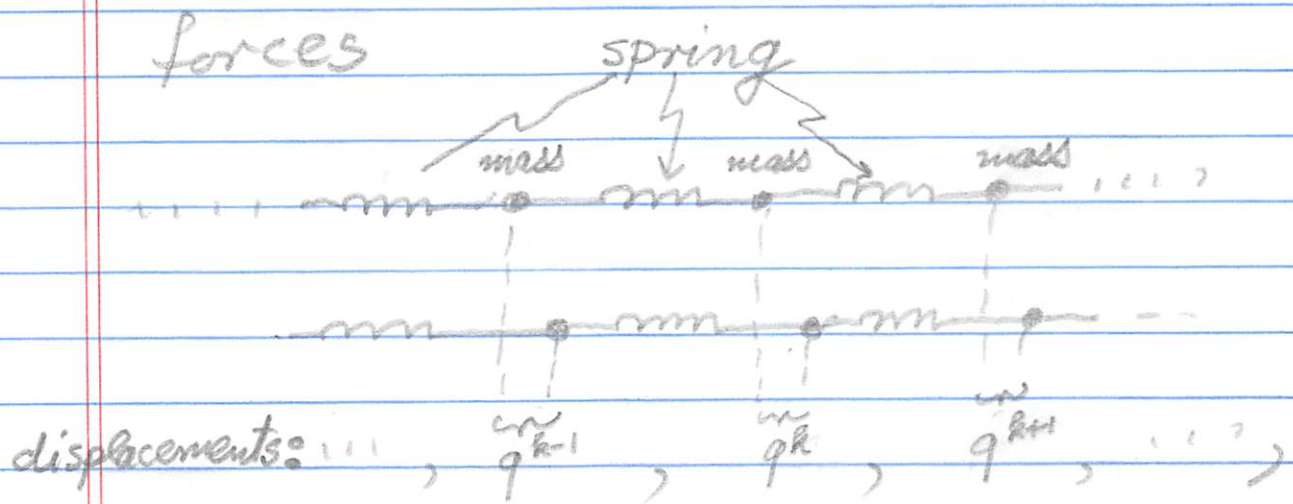 forces spring
mass mass mass
displacements: ..., q^{k-1}, q^k, q^{k+1}, ...,